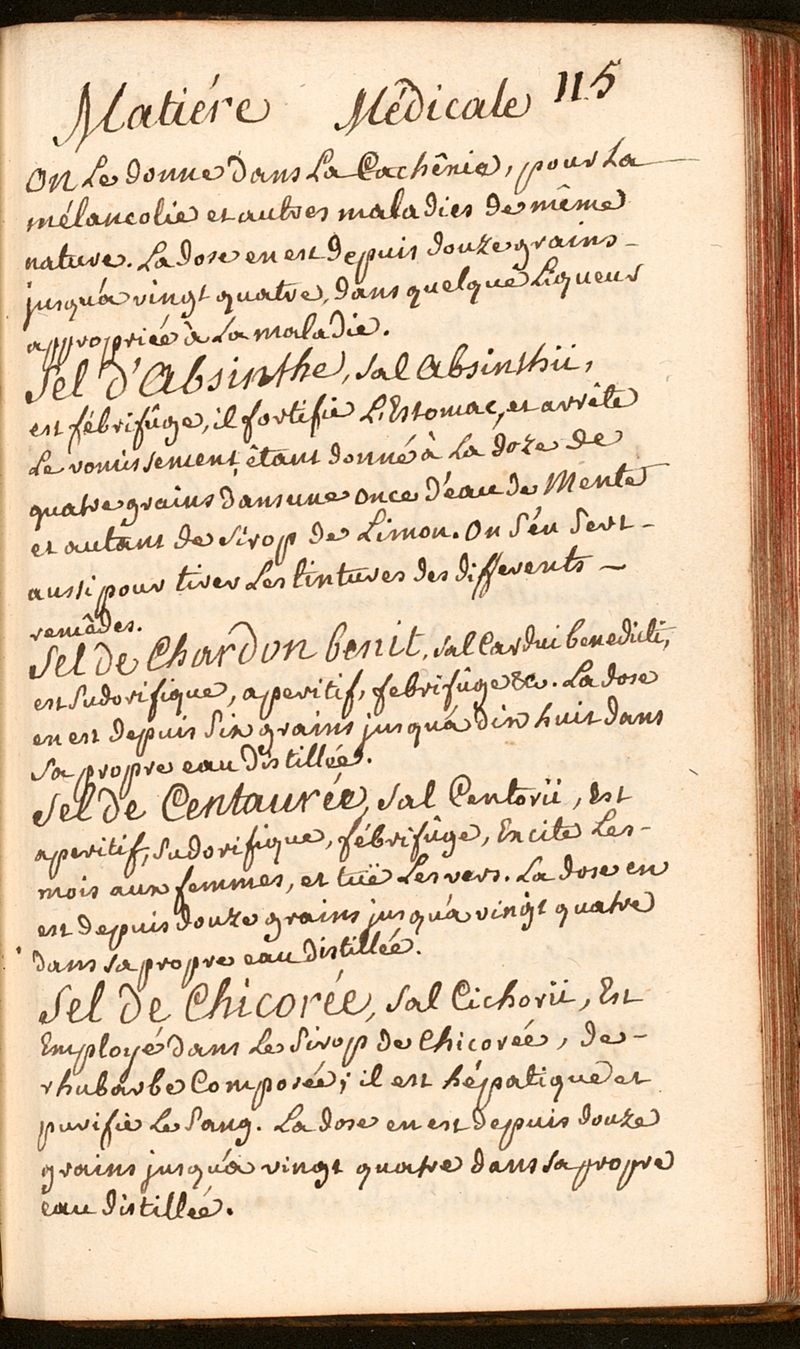 Matiére Médicale 115
On Le donne dans La Cachéxie, pour La
mélancolie et autres maladies de même
nature. La dose en est depuis douze grains
jusqu'a vingt quatre, dans quelquê Liqueur
appropriée à La maladie.
Sel d'Absinthe, sal Absinthii,
est fébrifûge, il fortifie L'Estomac, et arrête
Le vomissement étant donné à La doze de
quatre grains dans une once d'eau de Mente
et autant de Sirop de Limon. On S'en Sert -
aussi pour tirer Les tintures des differents -
remêdes.
Sel de Chardon benit, sal Cardui benedicti,
est Sudorifique, aperitif, febrifûge &c. La dose
en est depuis Six grains jusqu'á dix huit dans
Sa propre eau distillée.
Sel de Centaurée, sal Centorii, Est
aperitif, Sudorifique, fébrifûge, Excite Les -
mois aux femmes, et tuë Les vers. La dose en
est depuis douze grains jusqu'a vingt quatre
dans sa propre eau distillée.
Sel de Chicorée, sal Cichorii, Est
Employé dans Le Sirop de Chicorée, de -
rhubarbe Composée; il est hépatique et
purifie Le Sang. La dose en est depuis douze
grains jusqu'a vingt quatre dans sa propre
eau distillée.